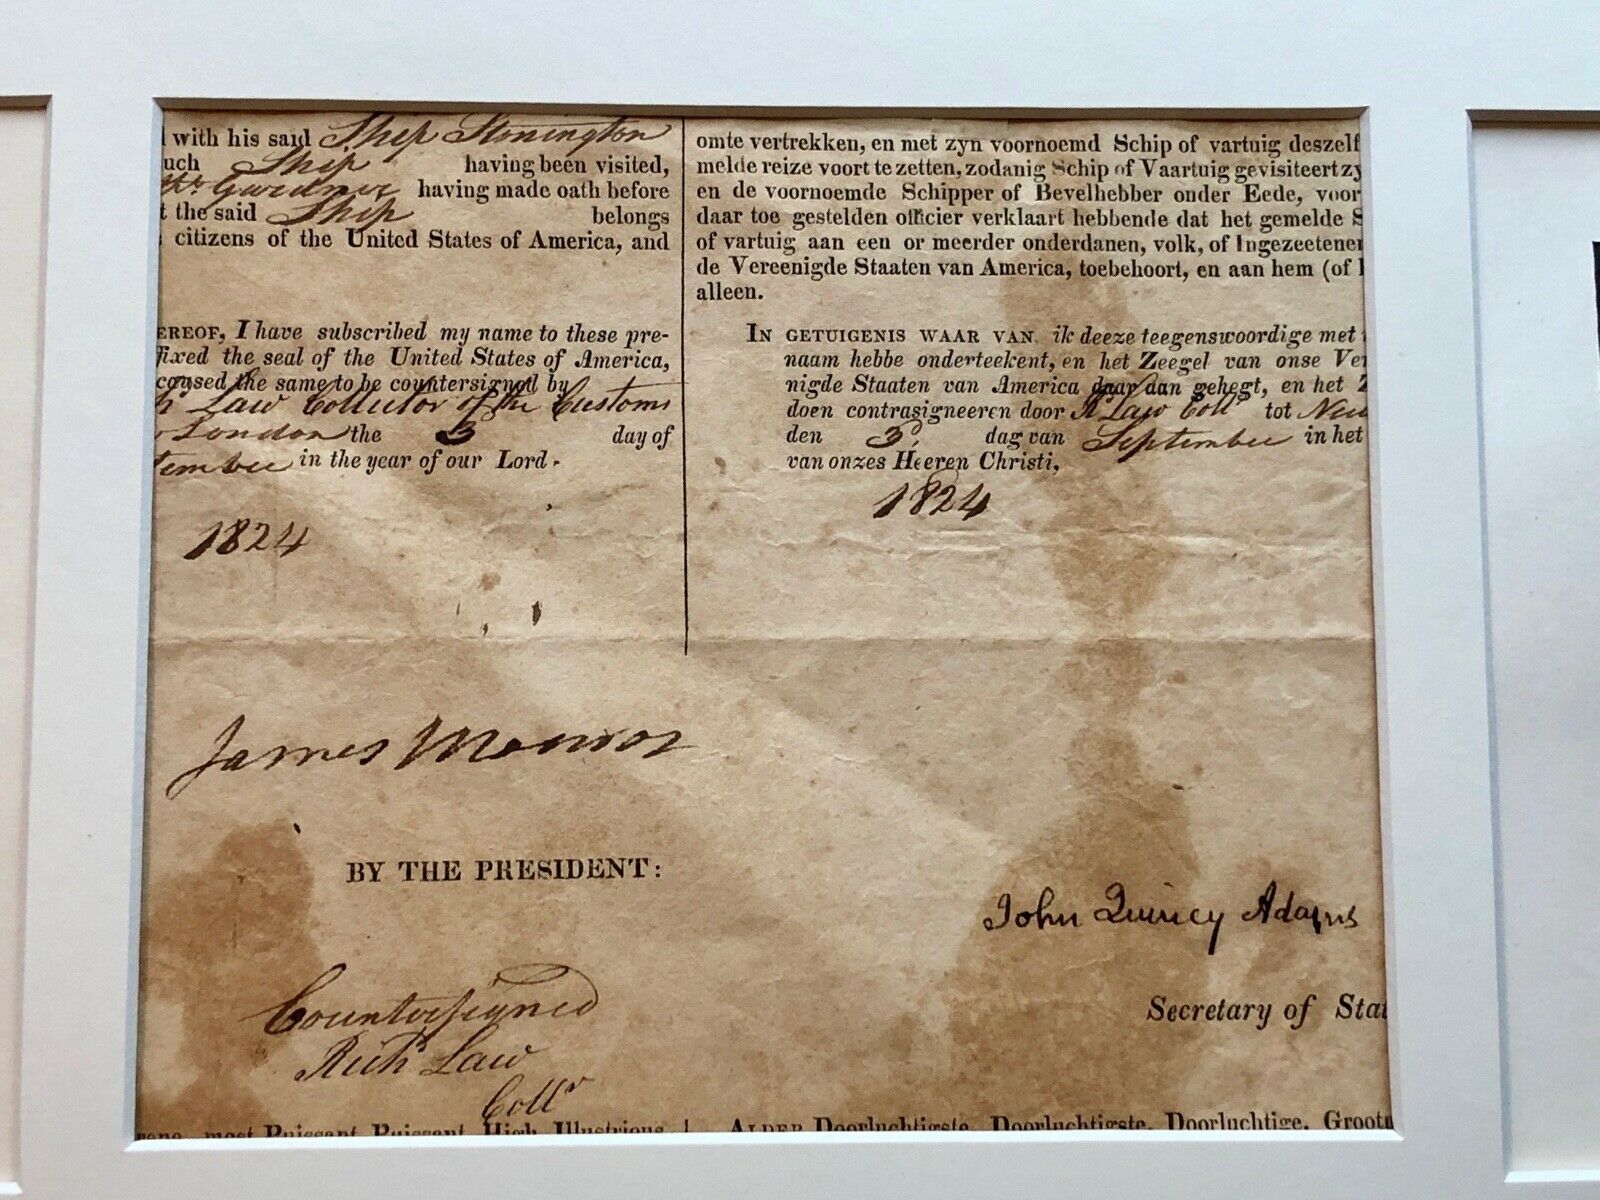 with his said Ship Stonington
uch Ship having been visited,
Gardner having made oath before
t the said Ship belongs
citizens of the United States of America, and
EREOF, I have subscribed my name to these pre-
fixed the seal of the United States of America,
caused the same to be countersigned by
Law Collector of the Customs
London the 3 day of
tember in the year of our Lord.
1824
omte vertrekken, en met zyn voornoemd Schip of vartuig deszelf
melde reize voort te zetten, zodanig Schip of Vaartuig gevisiteert zy
en de voornoemde Schipper of Bevelhebber onder Eede, voor
daar toe gestelden officier verklaart hebbende dat het gemelde S
of vartuig aan een or meerder onderdanen, volk, of Ingezeetener
de Vereenigde Staaten van America, toebehoort, en aan hem (of
alleen.
IN GETUIGENIS WAAR VAN ik deeze teegenswoordige met
naam hebbe onderteekent, en het Zeegel van onse Ver
nigde Staaten van America daar dan gehegt, en het Z
doen contrasigneeren door R Law Coll tot New
den 3d dag van September in het
van onzes Heeren Christi,
1824
James Monroe
BY THE PRESIDENT:
John Quincy Adams
Secretary of Stat
Countersigned
Richd Law
Collr
most Puissant, Puissant, High, Illustrious,
ALDER Doorluchtigste, Doorluchtigste, Doorluchtige, Grootm